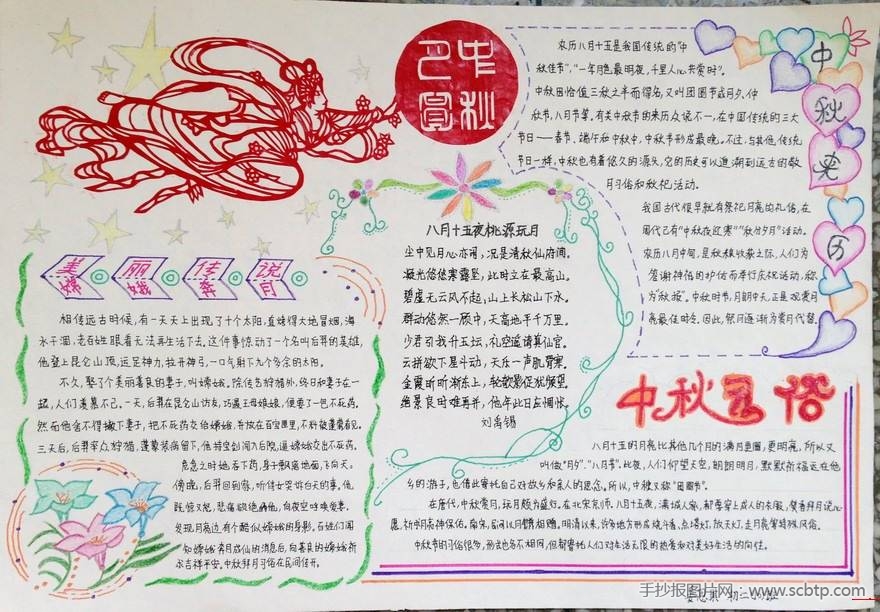 中秋
月圆
中秋来历
农历八月十五是我国传统的“中
秋佳节”，“一年月色最明夜，千里人心共赏时”。
中秋因恰值三秋之半而得名，又叫团圆节或月夕、仲
秋节、八月节等，有关中秋节的来历众说不一，在中国传统的三大
节日——春节、端午和中秋中，中秋节形成最晚。不过，与其他传统
节日一样，中秋也有着悠久的源头，它的历史可以追溯到远古的敬
月习俗和秋祀活动。
我国古代很早就有祭祀月亮的礼俗，在
周代已有“中秋夜迎寒”“秋分夕月”活动。
农历八月中旬，是秋粮收获之际，人们为
答谢神祇的护佑而举行庆祝活动，称
为“秋报”。中秋时节，月朗中天，正是观赏月
亮最佳时令。因此，祭月逐渐为赏月代替。
八月十五夜桃源玩月
尘中见月心亦闲，况是清秋仙府间。
凝光悠悠寒露坠，此时立在最高山。
碧虚无云风不起，山上长松山下水。
群动悠然一顾中，天高地平千万里。
少君引我升玉坛，礼空遥请真仙官。
云拼欲下星斗动，天乐一声肌骨寒。
金霞昕昕渐东上，轮欹影促犹频望。
绝景良时难再并，他年此日应惆怅。
刘禹锡
美丽佳说
嫦娥奔月
相传远古时候，有一天天上出现了十个太阳，直烤得大地冒烟，海
水干涸，老百姓眼看无法再生活下去。这件事惊动了一个名叫后羿的英雄，
他登上昆仑山顶，运足神力，拉开神弓，一口气射下九个多余的太阳。
不久，娶了个美丽善良的妻子，叫嫦娥。除传艺狩猎外，终日和妻子在一
起，人们羡慕不已。一天，后羿在昆仑山访友，巧遇王母娘娘，便要了一包不死药。
然而他舍不得撇下妻子，把不死药交给嫦娥，
三天后，后羿率众人狩猎，蓬蒙装病留下，他持宝剑闯入后院，逼嫦娥交出不死药。
危急之时她吞下药，身子飘离地面，飞向天。
傍晚，后羿回到家，听侍女哭诉白天的事，他
既惊又怒，悲痛欲绝
发现月亮边有个酷似嫦娥的身影。百姓们闻
知嫦娥奔月成仙的消息后，向善良的嫦娥祈
求吉祥平安。中秋拜月习俗在民间传开。
中秋习俗
八月十五的月亮比其他几个月的满月更圆，更明亮，所以又
叫做“月夕”、“八月节”。此夜，人们仰望天空，朗朗明月，默默祈福远在他
乡的游子，也借此寄托自己对故乡和亲人的思念。所以，中秋又称“团圆节”。
在唐代，中秋赏月、玩月颇为盛行。在北宋京师，八月十五夜，满城人家，都要穿上成人的衣服，焚香拜月说心
愿，祈求月亮神保佑。南宋，民间以月饼相赠。明清以来，许多地方形成烧斗香、点塔灯、放天灯、走月亮等特殊风俗。
中秋节的习俗很多，形式也各不相同，但都寄托人们对生活无限的热爱和对美好生活的向往。
初二
手抄报图片网：www.scbtp.com